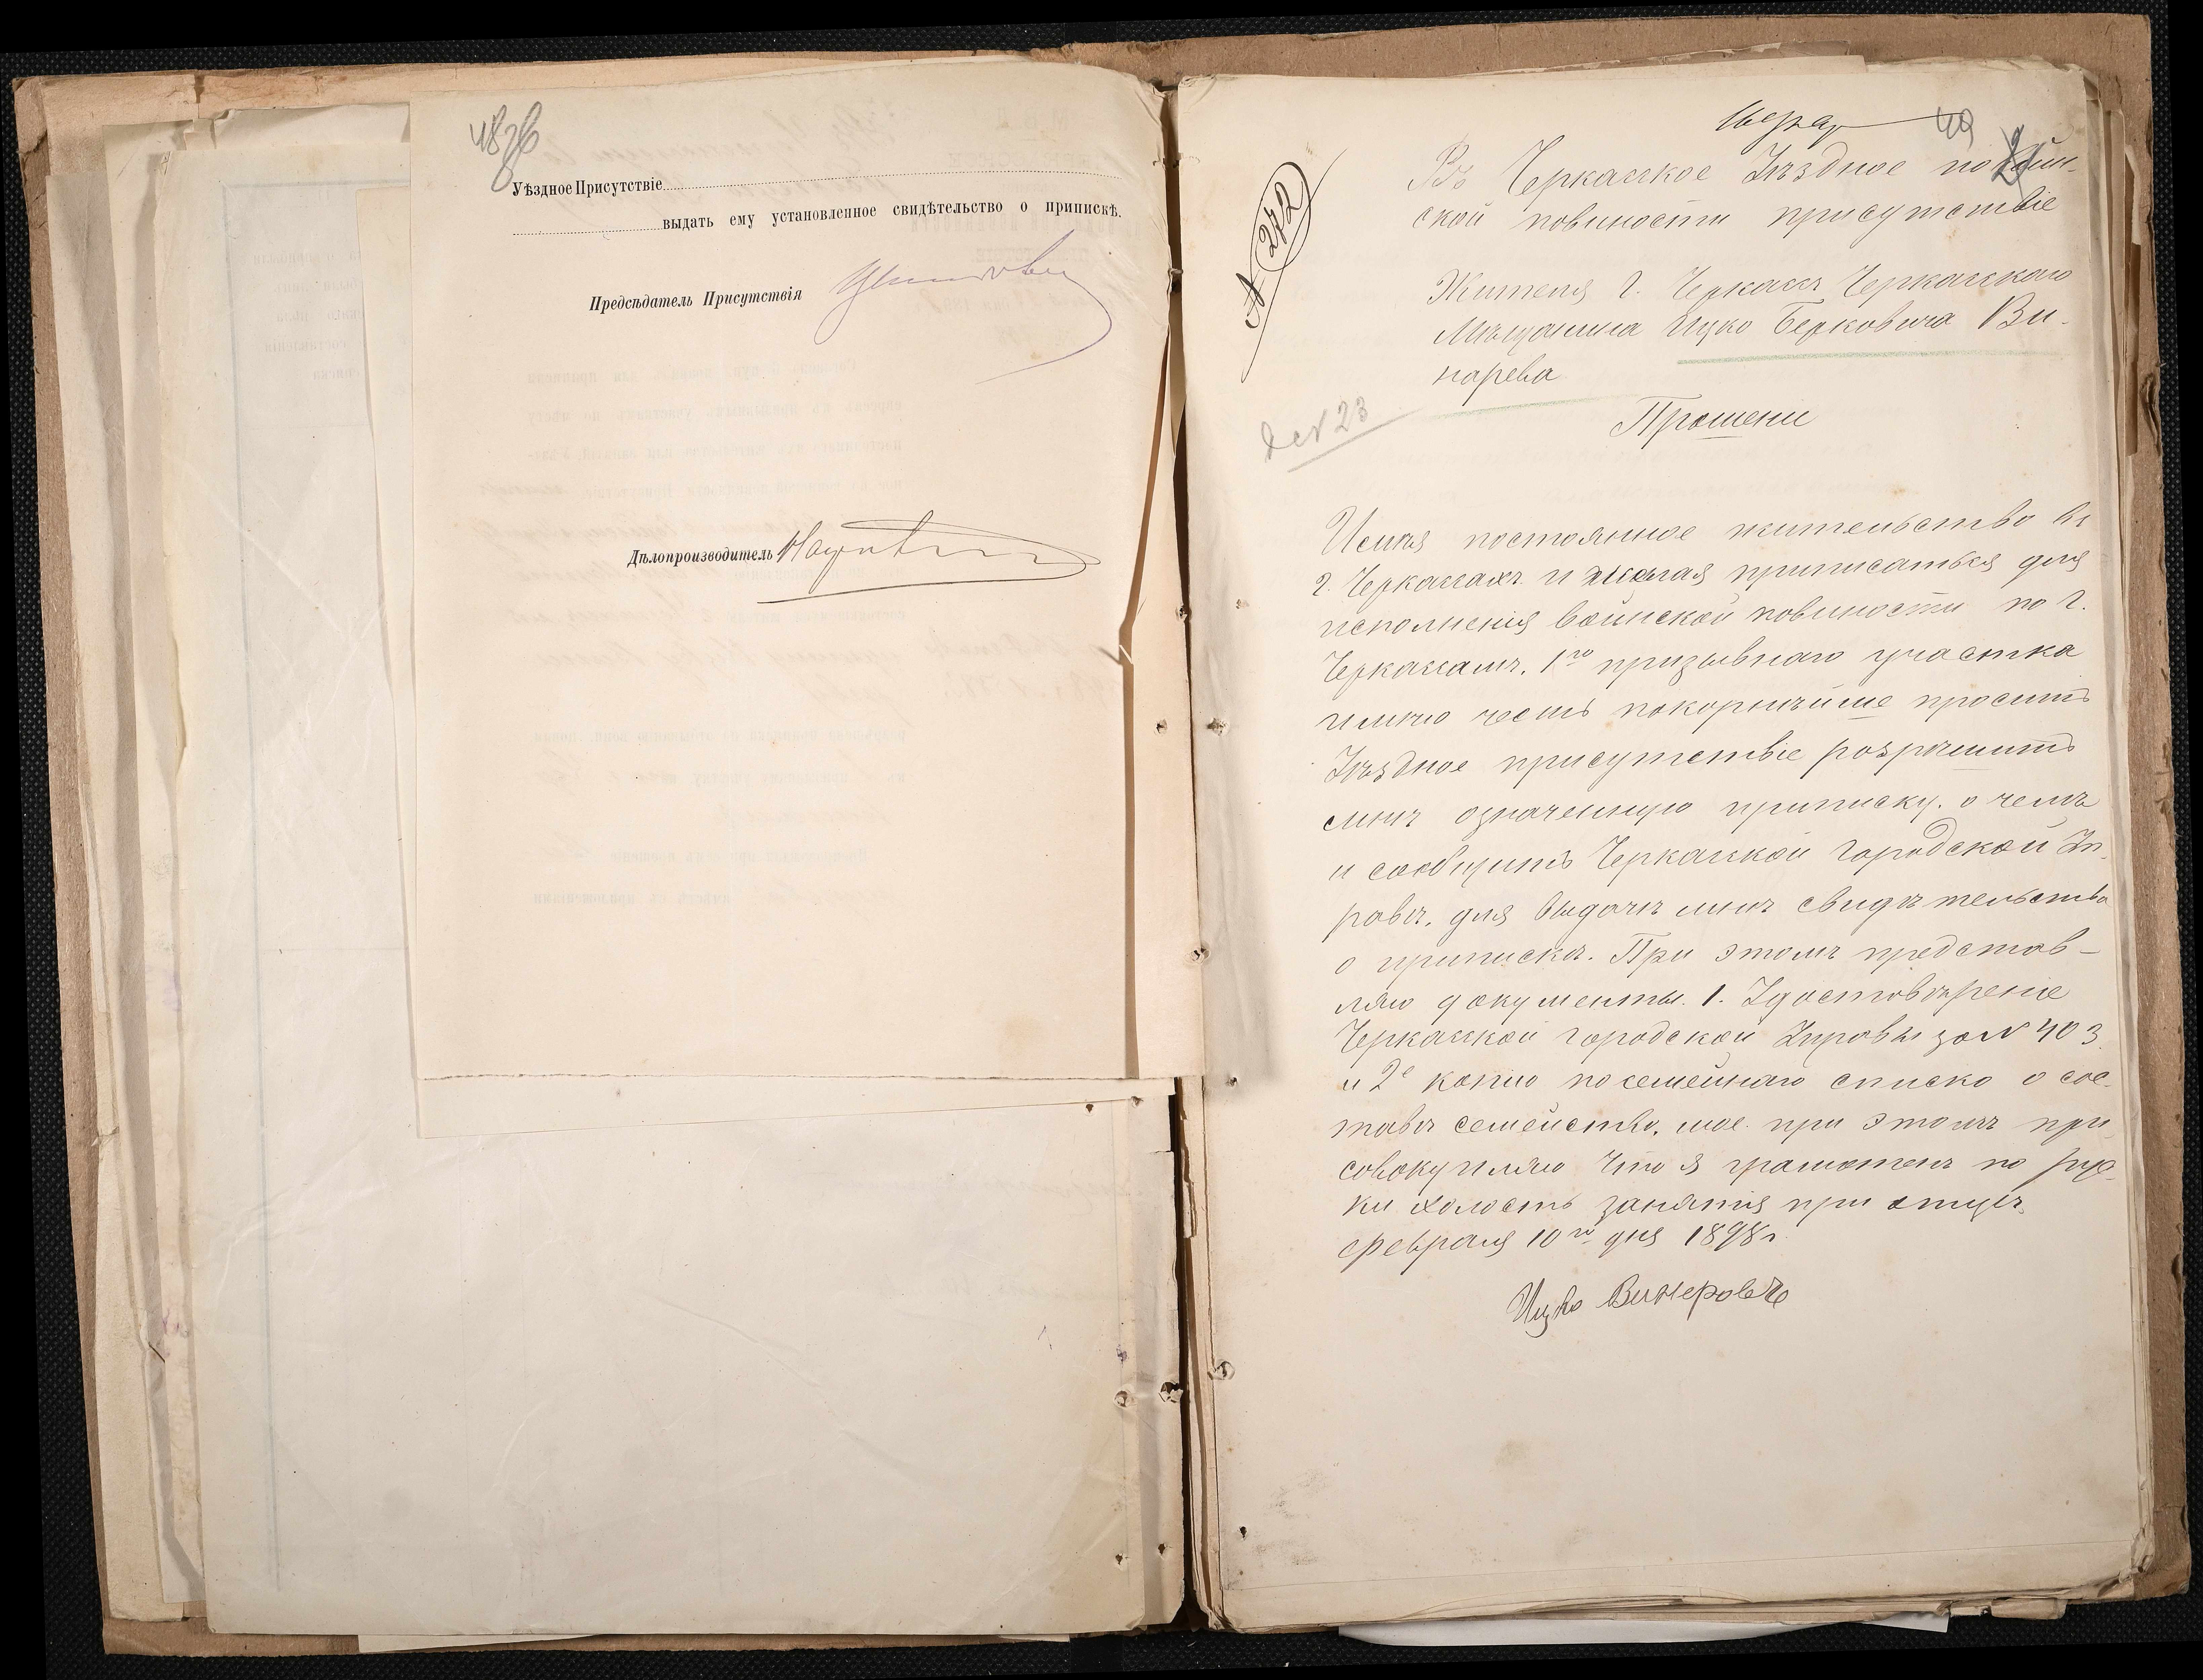 48 об
Уѣздное Присутствіе
выдать ему установленное свидѣтельство о припискѣ.
Предсѣдатель Присутствія
Дѣлопроизводитель
49
№ 272
Въ Черкасское Уѣздное по воин-
ской повиности присутствіе
Жителя г. Черкассъ Черкасскаго
Мѣщанина Ицко Берковича Ви-
нарева
Прошени
23
Имѣя постоянное жительство въ
г. Черкассахъ и желая приписаться для
исполненія воинской повиности по г.
Черкассамъ. 1го призывнаго участка
имѣю честь покорнѣйше просить
Уѣздное присутствіе розрѣшить
мнѣ означенную приписку. о чемъ
и сообщить Черкасской городской Уп-
равѣ, для выдачѣ мнѣ свидѣтельства
о припискѣ. При этомъ представ-
ляю документы. 1. Удостовѣреніе
Черкасской городской Управы за № 403
и 2е копію посемейнаго списка о сос-
тавѣ семейства. мое. при этомъ при-
совокупляю что я грамотенъ по рус-
ки холостъ занятія при отцѣ.
февраля 10го дня 1898 г.
Ицко Винеровъ